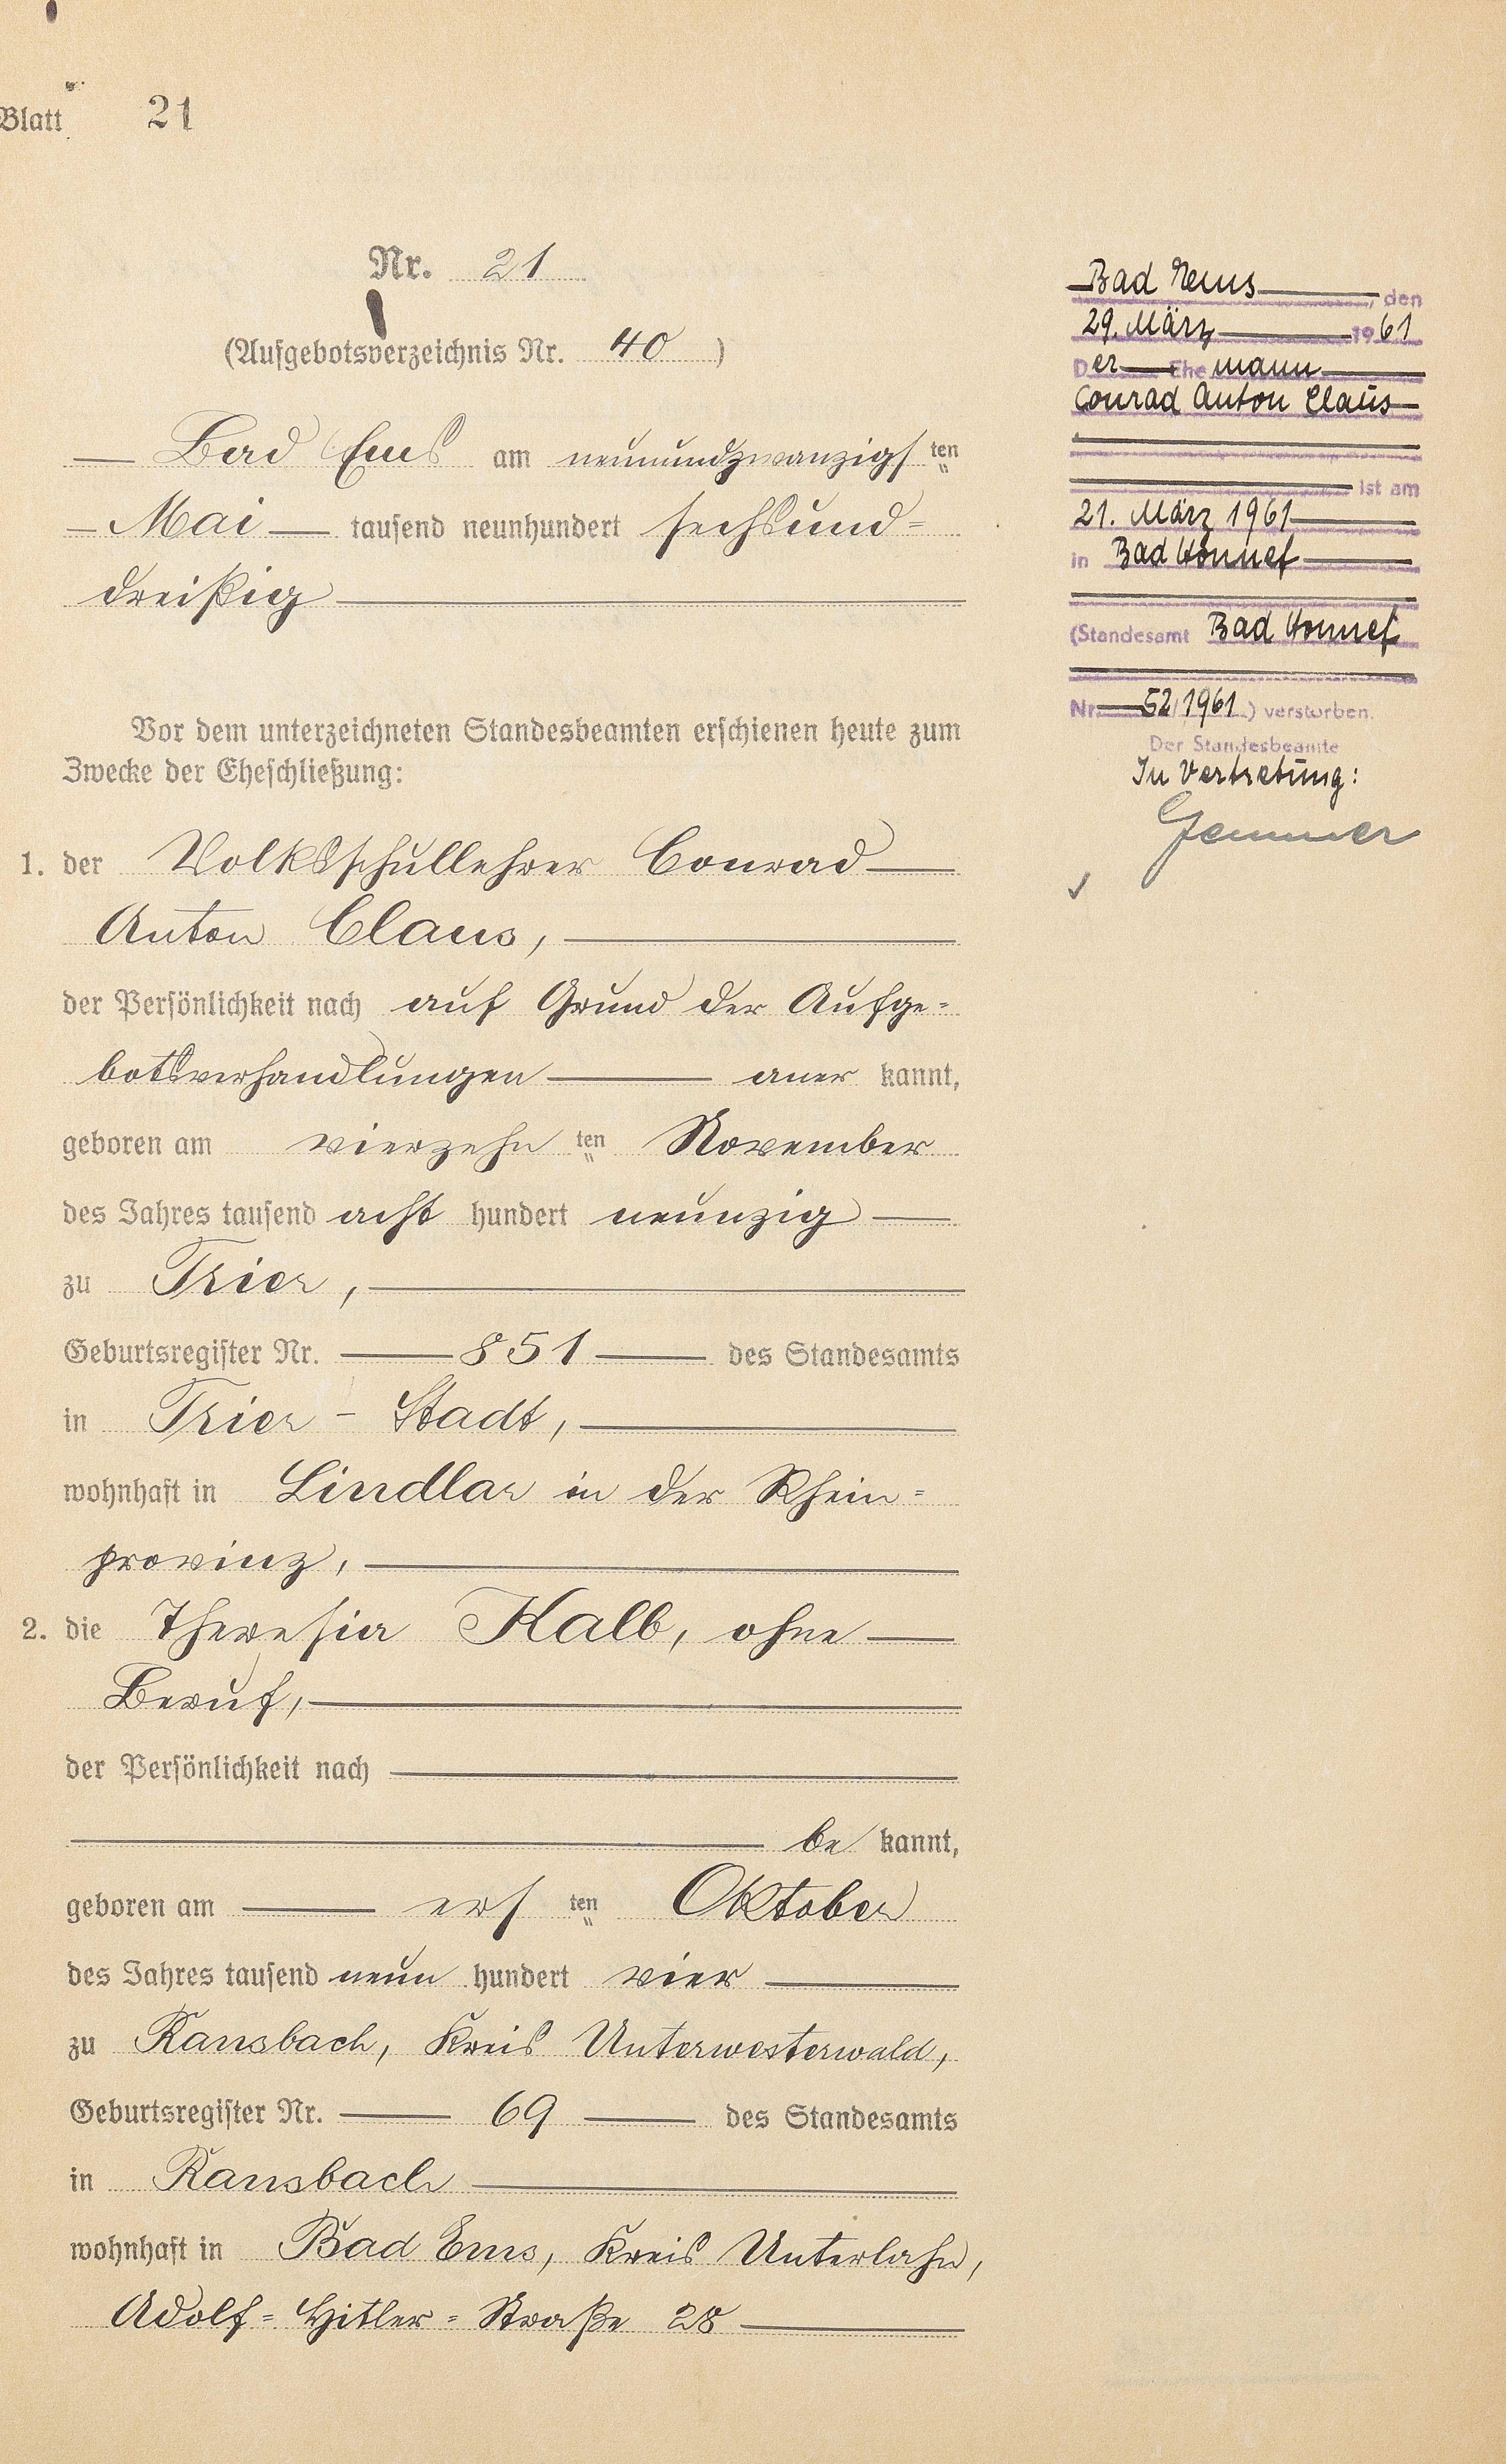 Blatt 21
Nr. 21
(Aufgebotsverzeichnis Nr. 40 )
Bad Ems am neunundzwanzigsten
Mai tausend neunhundert sechsund=
dreißig
Vor dem unterzeichneten Standesbeamten erschienen heute zum
Zwecke der Eheschließung:
1. der Volksschullehrer Conrad
Anton Claus,
der Persönlichkeit nach auf Grund der Aufge=
botsverhandlungen aner kannt,
geboren am vierzehn ten November
des Jahres tausend acht hundert neunzig
zu Trier,
Geburtsregister Nr. 851 des Standesamts
in Trier - Stadt,
wohnhaft in Lindlar in der Rhein=
provinz,
2. die Theresia Kalb, ohne
Beruf,
der Persönlichkeit nach
be kannt,
geboren am ers ten Oktober
des Jahres tausend neun hundert vier
zu Ransbach, Kreis Unterwesterwald,
Geburtsregister Nr. 69 des Standesamts
in Ransbach
wohnhaft in Bad Ems, Kreis Unterlahn,
Adolf=Hitler=Straße 28
Bad Ems, den
29. März 1961
Der Ehemann
Conrad Anton Claus
ist am
21. März 1961
in Bad Honnef
(Standesamt Bad Honnef
Nr. 52/1961) verstorben.
Der Standesbeamte
In Vertretung:
Gemmer